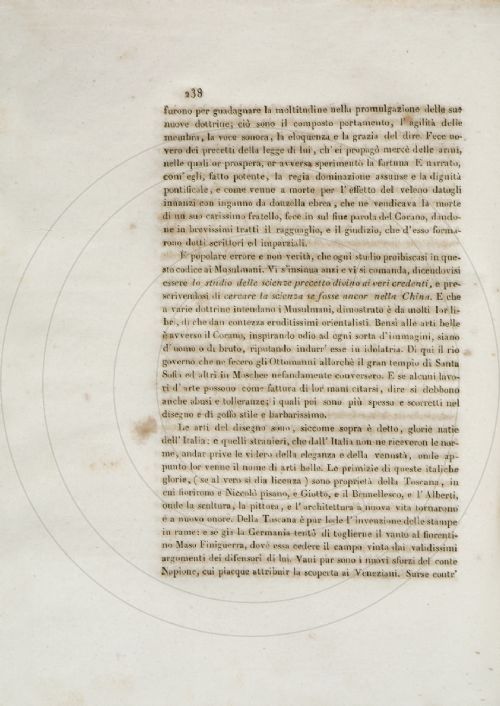 238
furono per guadagnare la moltitudine nella promulgazione delle sue
nuove dottrine, ciò sono il composto portamento, l'agilità delle
membra, la voce sonora, la eloquenza e la grazia del dire. Fece no-
vero dei precetti della legge di lui, ch'ei propagò mercè delle armi,
nelle quali or prospera, or avversa sperimentò la fortuna E narrato,
com'egli, fatto potente, la regia dominazione assunse e la dignità
pontificale, e come venne a morte per l'effetto del veleno datogli
innanzi con inganno da donzella ebrea, che ne vendicava la morte
di un suo carissimo fratello, fece in sul fine parola del Corano, dando-
ne in brevissimi tratti il ragguaglio, e il giudizio, che d'esso forma-
rono dotti scrittori ed imparziali.
È popolare errore e non verità, che ogni studio proibiscasi in que-
sto codice ai Musulmani. Vi s'insinua anzi e vi si comanda, dicendovisi
essere lo studio delle scienze precetto divino ai veri credenti, e pre-
scrivendosi di cercare la scienza se fosse ancor nella China. E che
a varie dottrine intendano i Musulmani, dimostrato è da molti lor li-
bri, di che dan contezza eruditissimi orientalisti. Bensì alle arti belle
è avverso il Corano, inspirando odio ad ogni sorta d'immagini, siano
d'uomo o di bruto, riputando indurr' esse in idolatria. Di qui il rio
governo che ne fecero gli Ottomanni allorchè il gran tempio di Santa
Sofia ed altri in Moschee nefandamente conversero. E se alcuni lavo-
ri d'arte possono come fattura di lor mani citarsi, dire si debbono
anche abusi e tolleranze; i quali poi sono più spesso e scorretti nel
disegno e di goffo stile e barbarissimo.
Le arti del disegno sono, siccome sopra è detto, glorie natie
dell'Italia: e quelli stranieri, che dall'Italia non ne riceveron le nor-
me, andar prive le videro della eleganza e della venustà, onde ap-
punto lor venne il nome di arti belle. Le primizie di queste italiche
glorie, (se al vero si dia licenza) sono proprietà della Toscana, in
cui fiorirono e Niccolò pisano, e Giotto, e il Brunellesco, e l'Alberti,
onde la scultura, la pittura, e l'architettura a nuova vita tornarono
e a nuovo onore. Della Toscana è pur lode l'invenzione delle stampe
in rame: e se già la Germania tentò di toglierne il vanto al fiorenti-
no Maso Finiguerra, dovè essa cedere il campo vinta dai validissimi
argomenti dei difensori di lui. Vani pur sono i nuovi sforzi del conte
Napione, cui piacque attribuir la scoperta ai Veneziani. Surse contr'